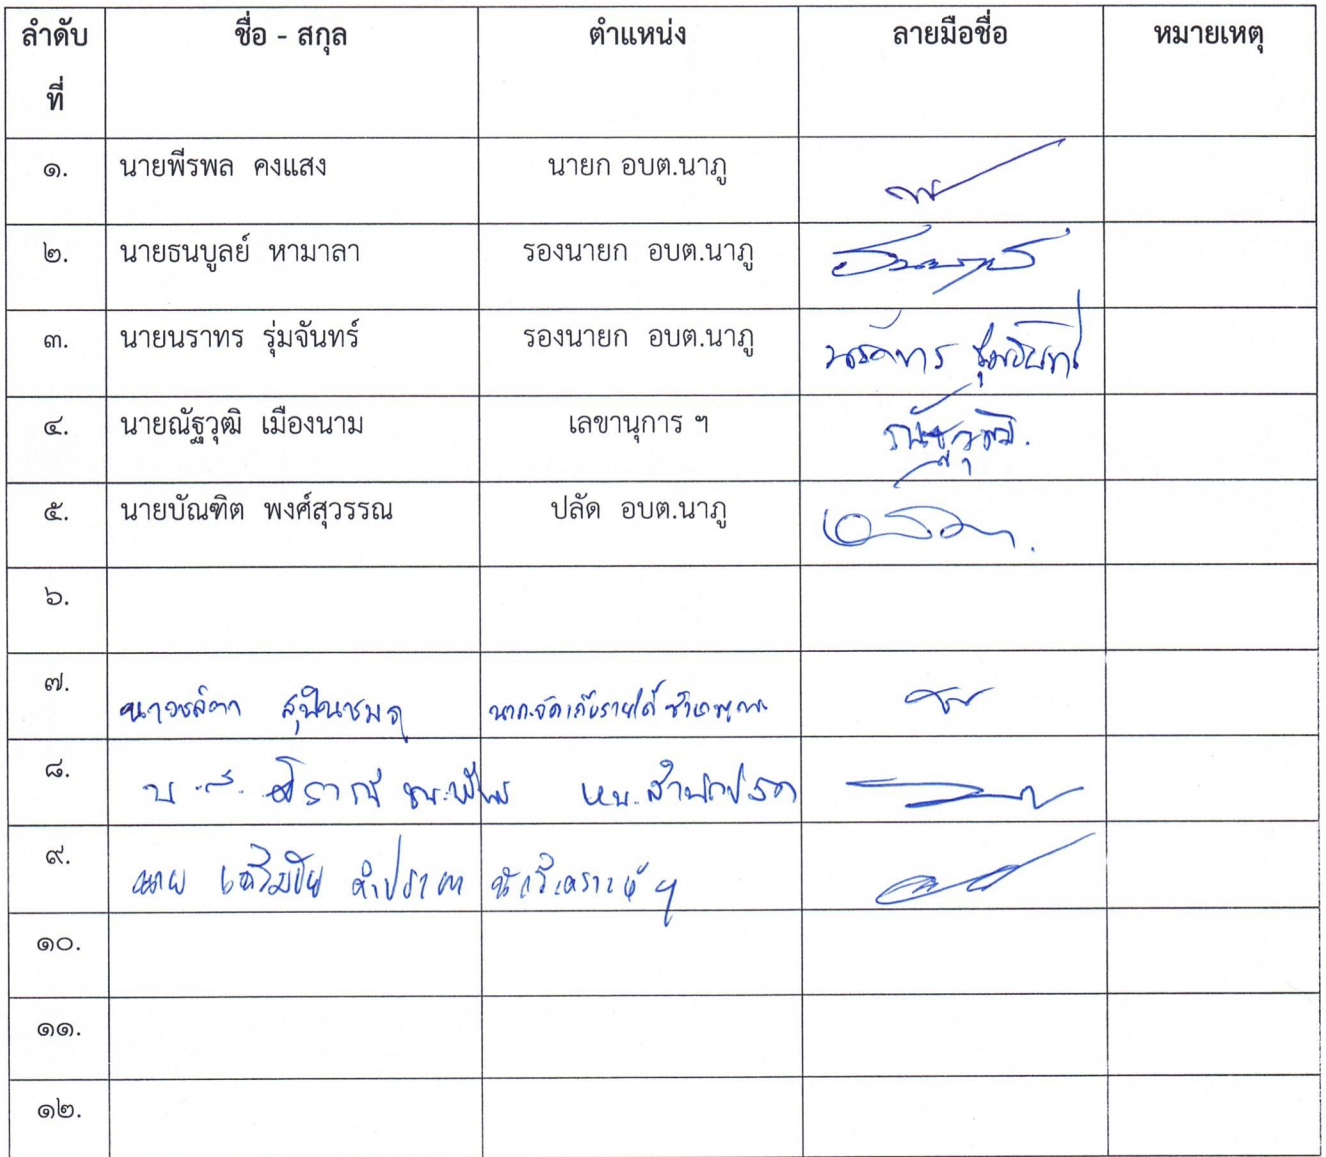 ลำดับ ชื่อ - สกุล ตำแหน่ง ลายมือชื่อ หมายเหตุ
ที่
๑. นายพีรพล คงแสง นายก อบต.นาภู
๒. นายธนบูลย์ หามาลา รองนายก อบต.นาภู
๓. นายนราทร รุ่มจันทร์ รองนายก อบต.นาภู นราทร รุ่มจันทร์
๔. นายณัฐวุฒิ เมืองนาม เลขานุการ ฯ ณัฐวุฒิ.
๕. นายบัณฑิต พงศ์สุวรรณ ปลัด อบต.นาภู
๖.
๗.
๘. น.ส. หน.สำนักปลัด
๙. นาย เฉลิมชัย นักวิเคราะห์ฯ
๑๐.
๑๑.
๑๒.